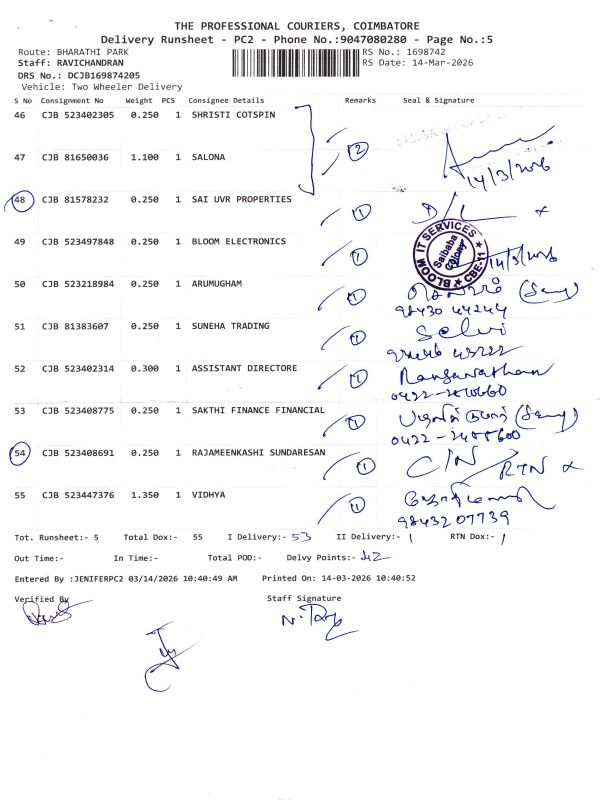 THE PROFESSIONAL COURIERS, COIMBATORE
Delivery Runsheet - PC2 - Phone No.:9047080280 - Page No.:5
Route: BHARATHI PARK RS No.: 1698742
Staff: RAVICHANDRAN RS Date: 14-Mar-2026
DRS No.: DCJB169874205
Vehicle: Two Wheeler Delivery
S No Consignment No Weight PCS Consignee Details Remarks Seal & Signature
46 CJB 523402305 0.250 1 SHRISTI COTSPIN
2
47 CJB 81650036 1.100 1 SALONA 14/3/2026
48 CJB 81578232 0.250 1 SAI UVR PROPERTIES 1 D/L x
BLOOM IT SERVICES Saibaba Colony CBE-11
49 CJB 523497848 0.250 1 BLOOM ELECTRONICS 1 14/3/2026
50 CJB 523218984 0.250 1 ARUMUGHAM 1
98430 44244
51 CJB 81383607 0.250 1 SUNEHA TRADING 1 Selvi
52 CJB 523402314 0.300 1 ASSISTANT DIRECTORE 1 Ranganathan
53 CJB 523408775 0.250 1 SAKTHI FINANCE FINANCIAL 1
0422-2488600
54 CJB 523408691 0.250 1 RAJAMEENKASHI SUNDARESAN 1 C/N RTN x
55 CJB 523447376 1.350 1 VIDHYA 1
98432 07739
Tot. Runsheet:- 5 Total Dox:- 55 I Delivery:- 53 II Delivery:- 1 RTN Dox:- 1
Out Time:- In Time:- Total POD:- Delvy Points:- 42
Entered By :JENIFERPC2 03/14/2026 10:40:49 AM Printed On: 14-03-2026 10:40:52
Verified By Staff Signature